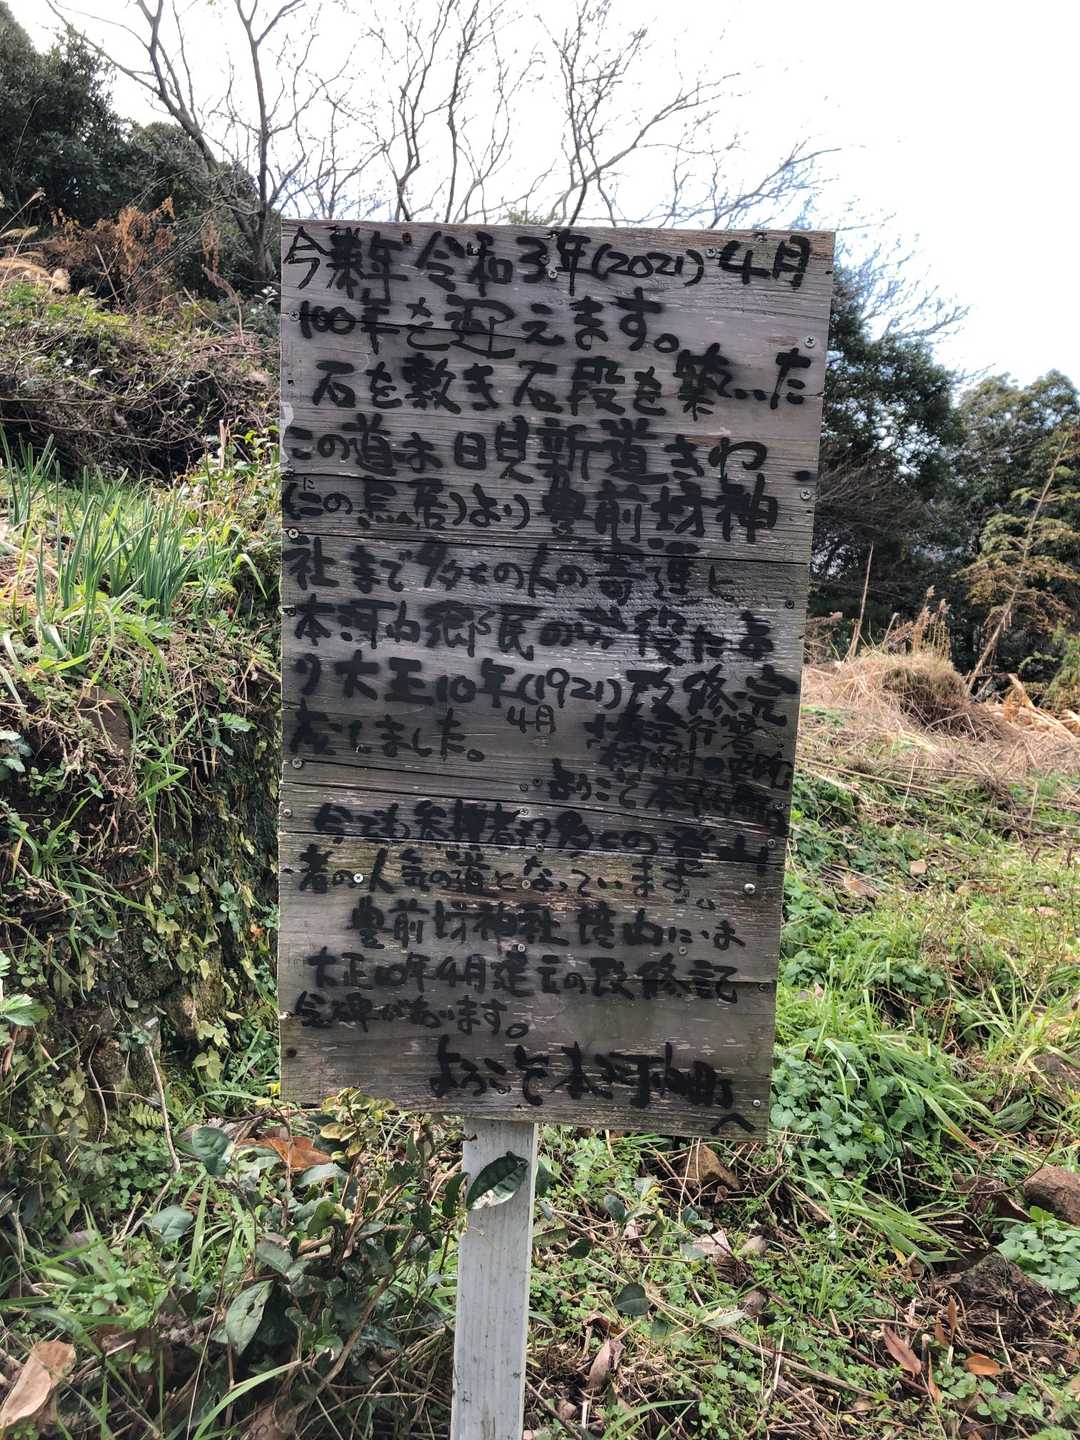 今年 令和3年(2021)4月
100年を迎えます。
石を敷き石段を築いた
この道は日見新道きわ
(この鳥居)より豊前坊神
社まで多くの人の寄進と
本河内郷民の労役によ
り大正10年(1921)改修完
成しました。4月
ようこそ本河内
今でも参拝者や多くの登山
者の人気の道となっています。
豊前坊神社境内には
大正10年4月建立の改修記
念碑があります。
ようこそ本河内町へ